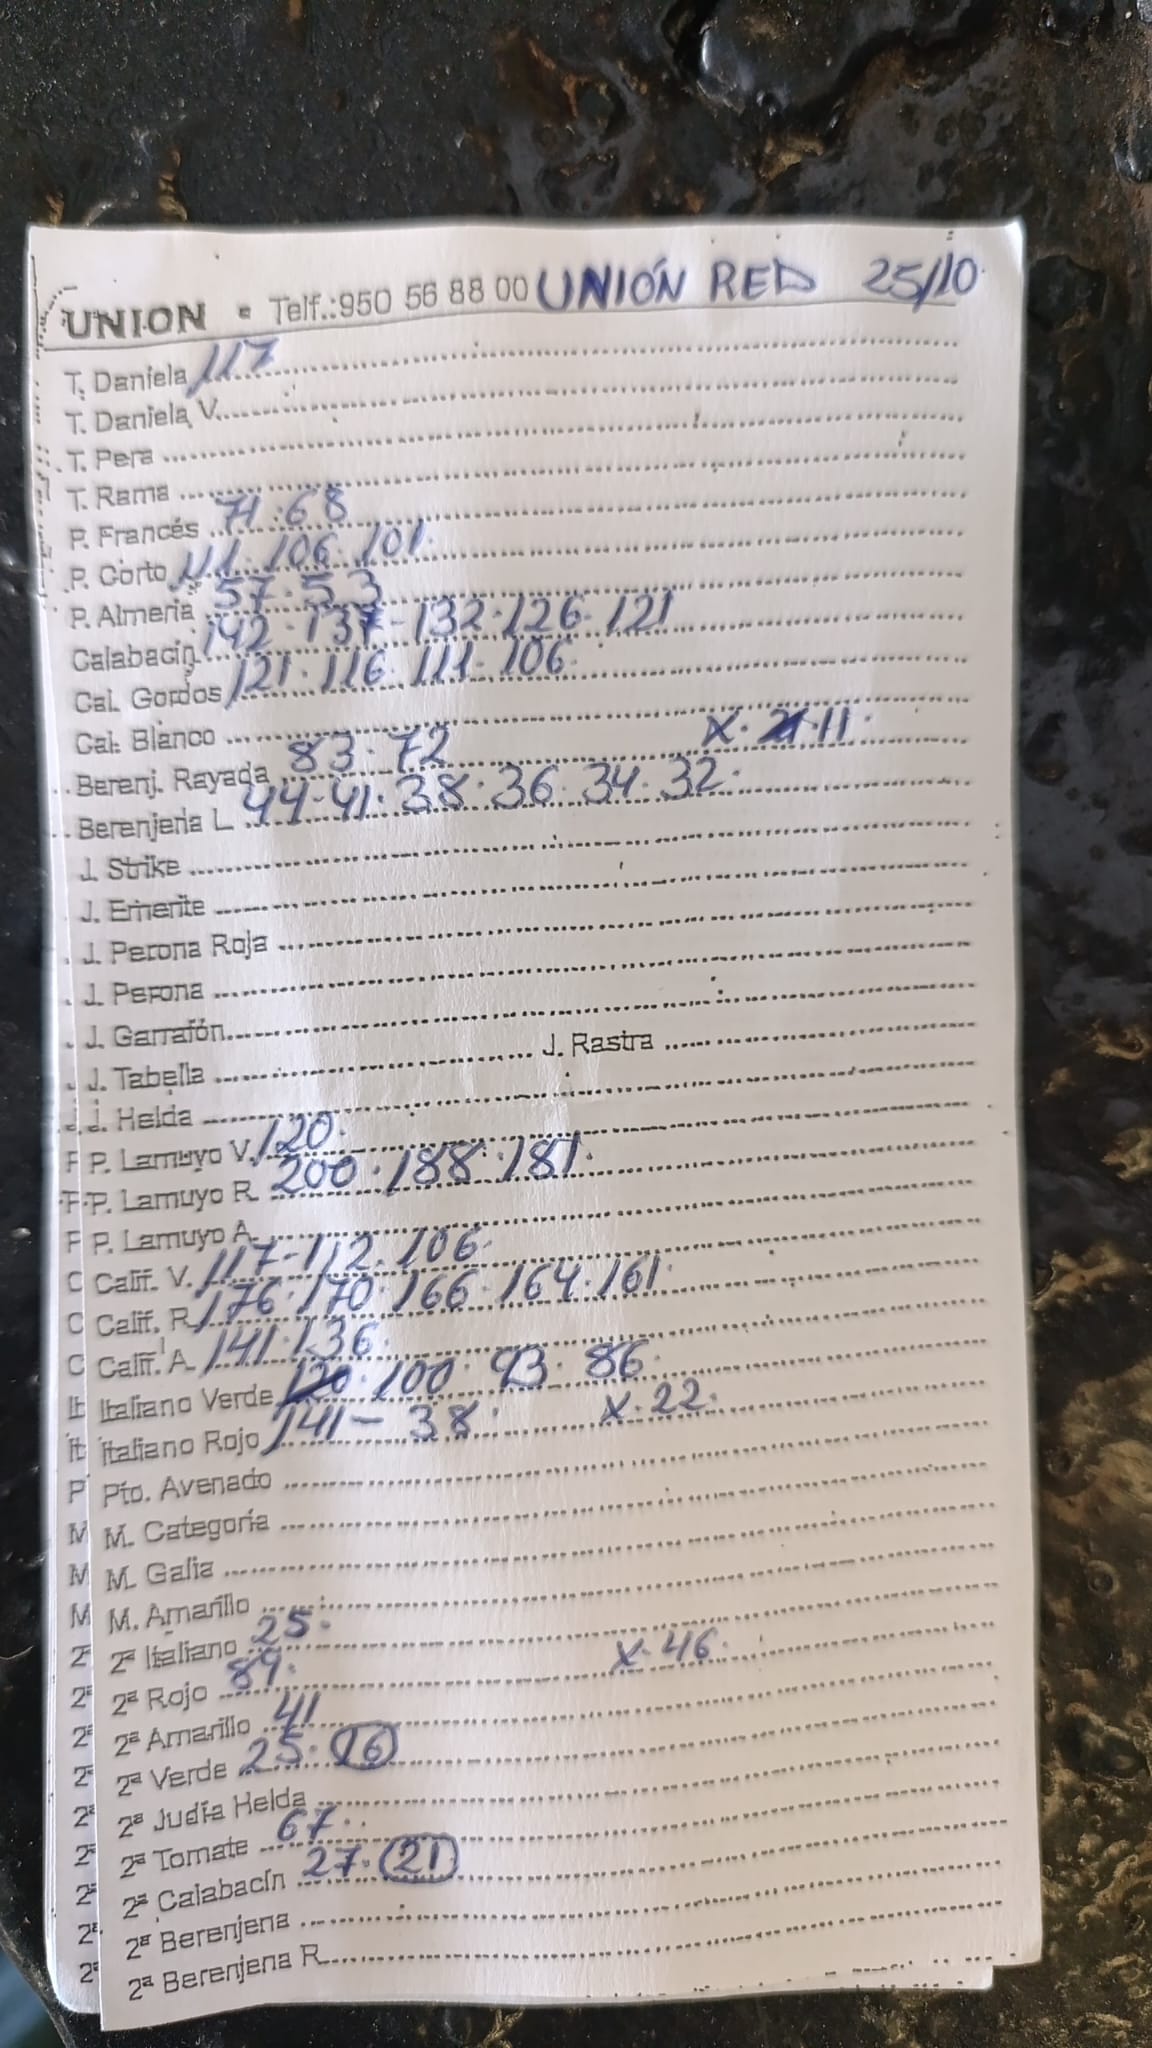 UNION - Telf.:950 56 88 00 UNIÓN RED 25/10
T. Daniela 117
T. Daniela V.
T. Pera
T. Rama
P. Francés 71·68
P. Corto 111·106·101·
P. Almeria 57·53
Calabacín 142·137-132·126·121
Cal. Gordos 121·116·111·106·
Cal. Blanco
Berenj. Rayada 83·72 X·21·11·
Berenjena L 44-41·38·36·34·32·
J. Strike
J. Emerite
J. Perona Roja
J. Perona
J. Garrafón
J. Tabella J. Rastra
J. Helda
P. Lamuyo V. 120·
P. Lamuyo R 200·188·181·
P. Lamuyo A
Calif. V. 117-112·106·
Calif. R 176·170·166·164·161·
Calif. A 141·136·
Italiano Verde 120·100·93·86·
Italiano Rojo 141- 38· X·22·
Pto. Avenado
M. Categoría
M. Galia
M. Amarillo
2ª Italiano 25·
2ª Rojo 89· X·46·
2ª Amarillo 41
2ª Verde 25·16
2ª Judía Helda
2ª Tomate 67·
2ª Calabacín 27·21
2ª Berenjena
2ª Berenjena R